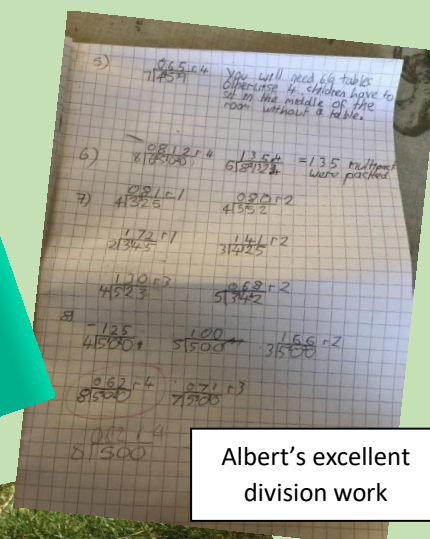 5) 065r4
7|459
You will need 66 tables
otherwise 4 children have to
sit in the middle of the
room without a table.
6) 0812r4
8|6500
135
6|812
=135 multipack
were packed
7) 081r1
4|325
080r2
4|352
172r1
2|345
141r2
3|425
130r3
4|523
068r2
5|342
8)
125
4|500
100
5|500
166r2
3|500
062r4
8|500
071r3
7|500
062r4
8|500
Albert's excellent
division work